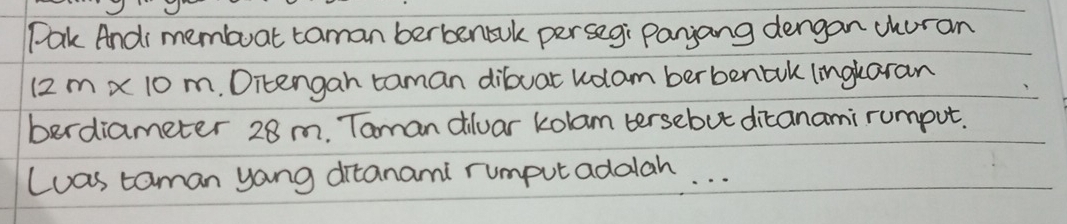 Pak Andi membuat taman berbentuk persegi panjang dengan ukuran
12 m x 10 m. Ditengah taman dibuat kolam berbentuk lingkaran
berdiameter 28 m. Taman diluar kolam tersebut ditanami rumput.
Luas taman yang ditanami rumput adalah ...